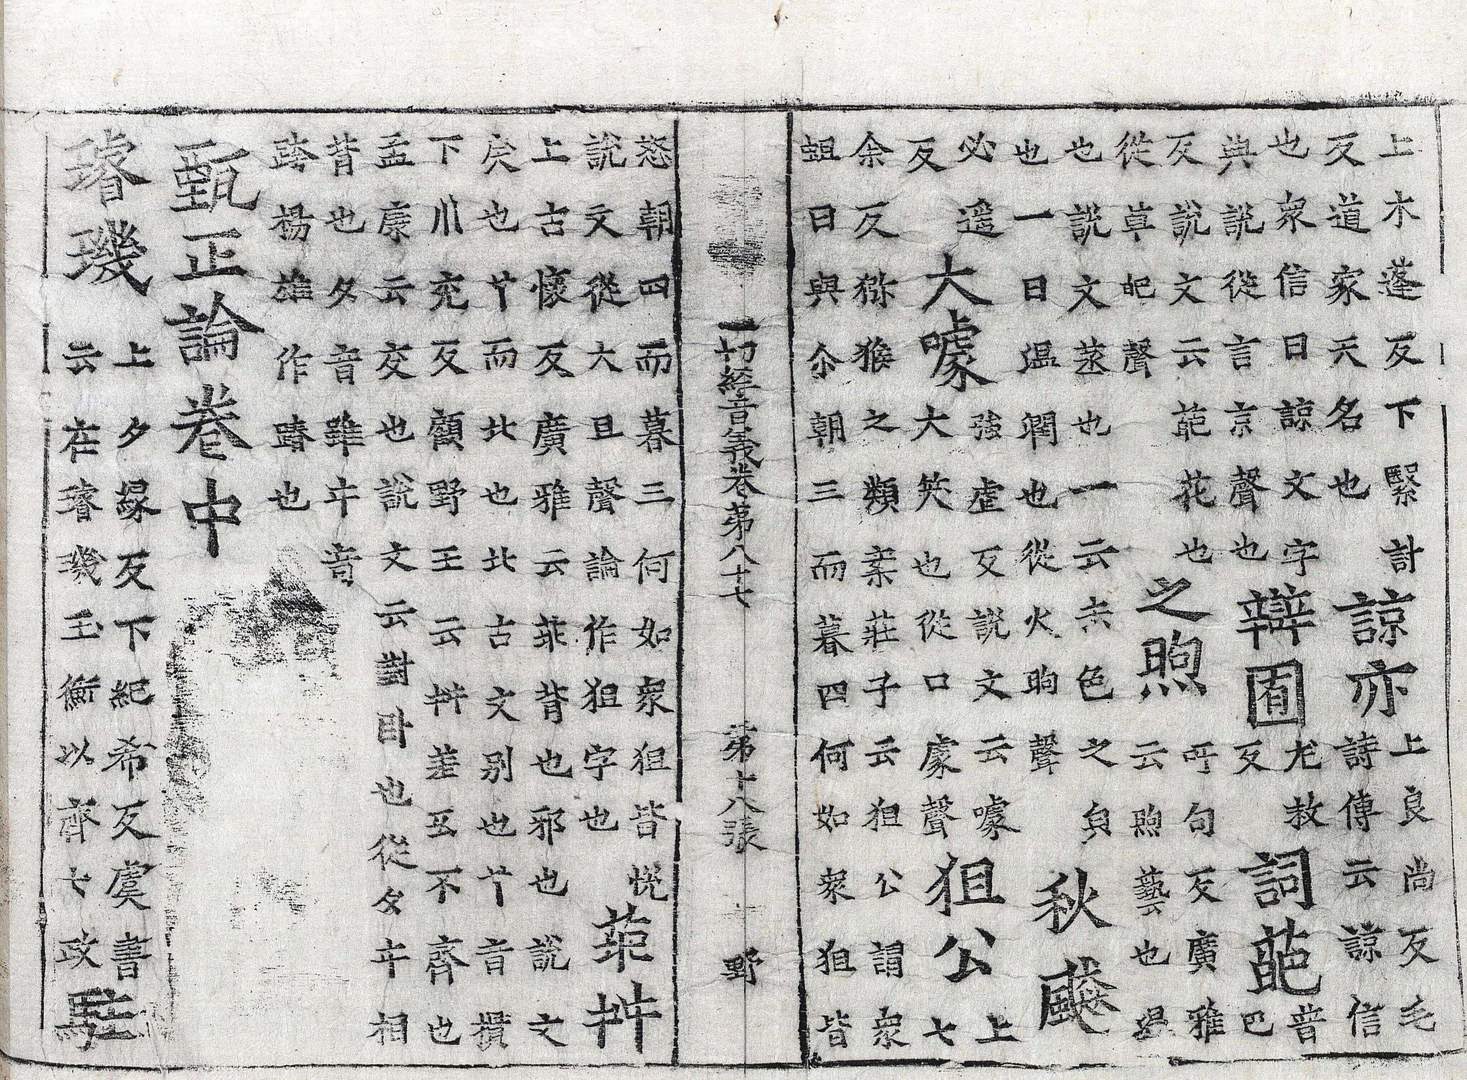 上木蓬反下緊計
反道家天名也
諒亦
上良尚反毛
詩傳云諒信
也衆信曰諒文字
與說從言京聲也
辯囿
尤救
反
詞葩
普
巴
反說文云葩花也
從草皅聲
之煦
吁句反廣雅
云煦藝也溫
也說文蒸也一云赤色之皃
也一曰溫潤也從火昫聲
秋飈
必遥
反
大噱
強虐反說文云噱
大笑也從口豦聲
狙公
上
七
余反獼猴之類案莊子云狙公謂衆
狙曰與尒朝三而暮四何如衆狙皆
一切經音義卷第八十七 第十八張 野
怒朝四而暮三何如衆狙皆悅
說文從犬且聲論作狙字也
菲舛
上古懷反廣雅云菲背也邪也說文
戾也丫而北也北古文別也丫音攢
下川充反顧野王云舛差互不齊也
孟康云交也說文云對臥也從夊㐄相
背也夊音雖㐄音
跨楊雄作踳也
甄正論卷中
璿璣
上夕緣反下紀希反虞書
云在璿璣玉衡以齊七政
駐